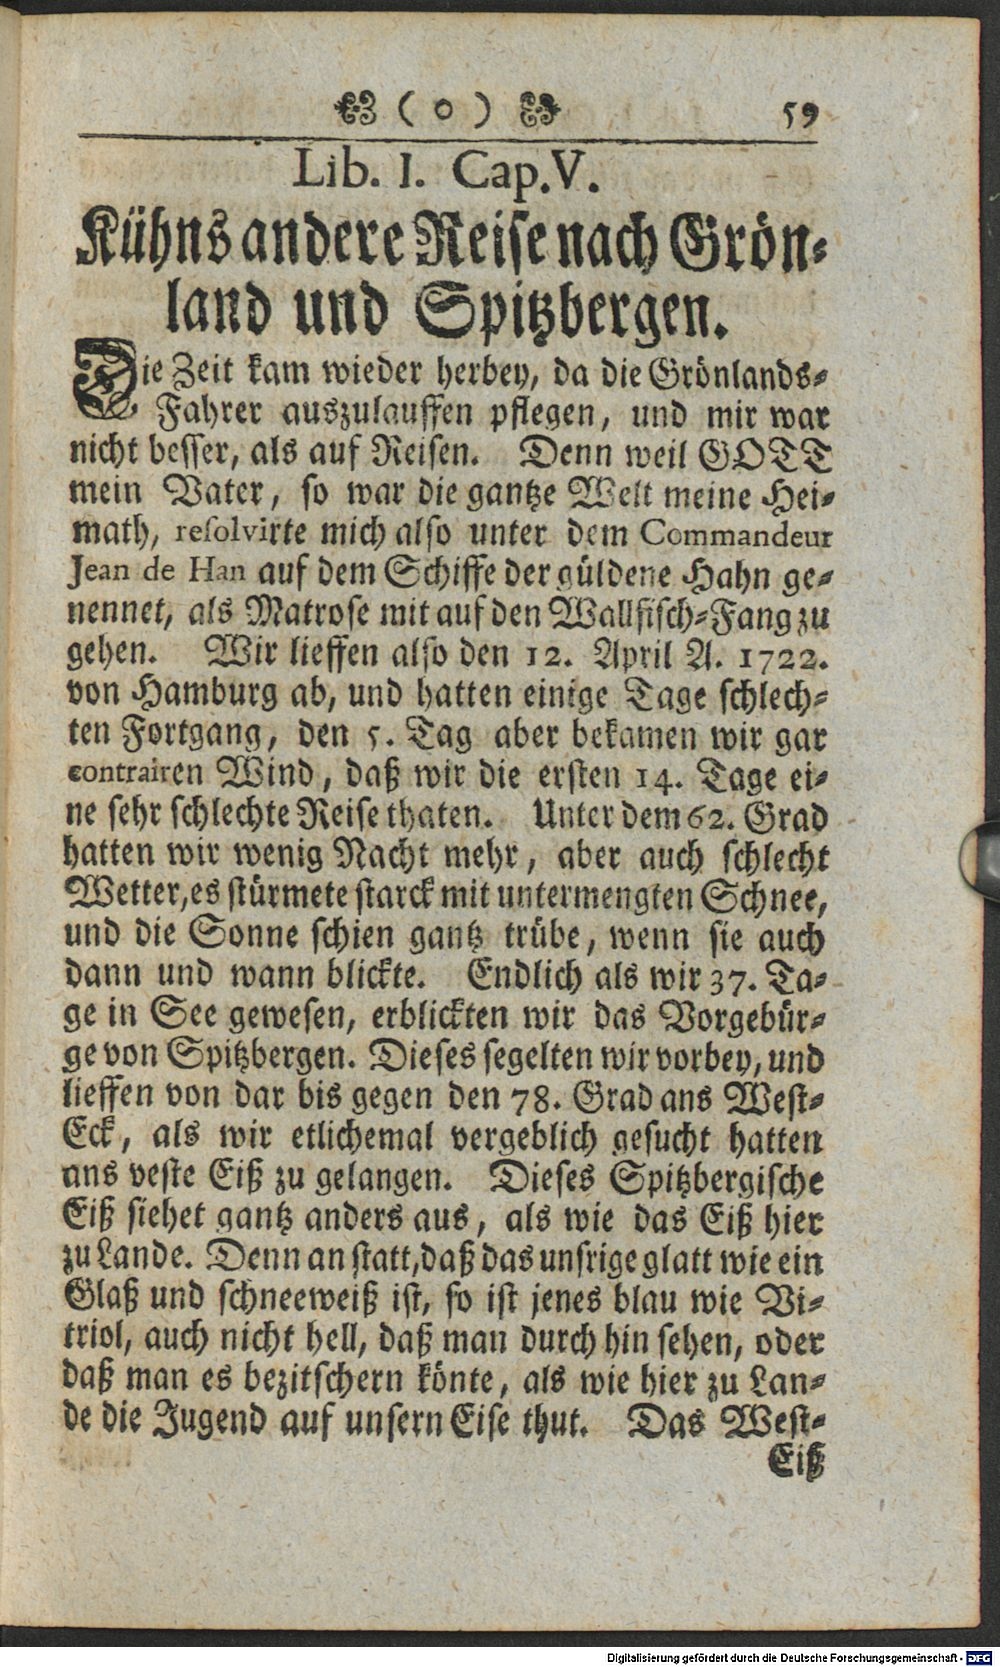 ( o ) 59
Lib. I. Cap. V.
Kühns andere Reise nach Grön-
land und Spitzbergen.
Die Zeit kam wieder herbey, da die Grönlands-
Fahrer auszulauffen pflegen, und mir war
nicht besser, als auf Reisen. Denn weil GOTT
mein Vater, so war die gantze Welt meine Hei-
math, resolvirte mich also unter dem Commandeur
Jean de Han auf dem Schiffe der güldene Hahn ge-
nennet, als Matrose mit auf den Wallfisch-Fang zu
gehen. Wir lieffen also den 12. April A. 1722.
von Hamburg ab, und hatten einige Tage schlech-
ten Fortgang, den 5. Tag aber bekamen wir gar
contrairen Wind, daß wir die ersten 14. Tage ei-
ne sehr schlechte Reise thaten. Unter dem 62. Grad
hatten wir wenig Nacht mehr, aber auch schlecht
Wetter, es stürmete starck mit untermengten Schnee,
und die Sonne schien gantz trübe, wenn sie auch
dann und wann blickte. Endlich als wir 37. Ta-
ge in See gewesen, erblickten wir das Vorgebür-
ge von Spitzbergen. Dieses segelten wir vorbey, und
lieffen von dar bis gegen den 78. Grad ans West-
Eck, als wir etlichemal vergeblich gesucht hatten
ans veste Eiß zu gelangen. Dieses Spitzbergische
Eiß siehet gantz anders aus, als wie das Eiß hier
zu Lande. Denn an statt, daß das unsrige glatt wie ein
Glaß und schneeweiß ist, so ist jenes blau wie Vi-
triol, auch nicht hell, daß man durch hin sehen, oder
daß man es bezitschern könte, als wie hier zu Lan-
de die Jugend auf unsern Eise thut. Das West-
Eiß
Digitalisierung gefördert durch die Deutsche Forschungsgemeinschaft - DFG